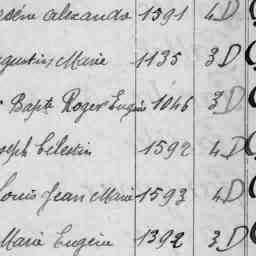 Alexandre 1591 4 D
Augustin Marie 1135 3 D
Bapte Roger Eugène 1046 3 D
Joseph Célestin 1592 4 D
Louis Jean Marie 1593 4 D
Marie Eugène 1392 3 D